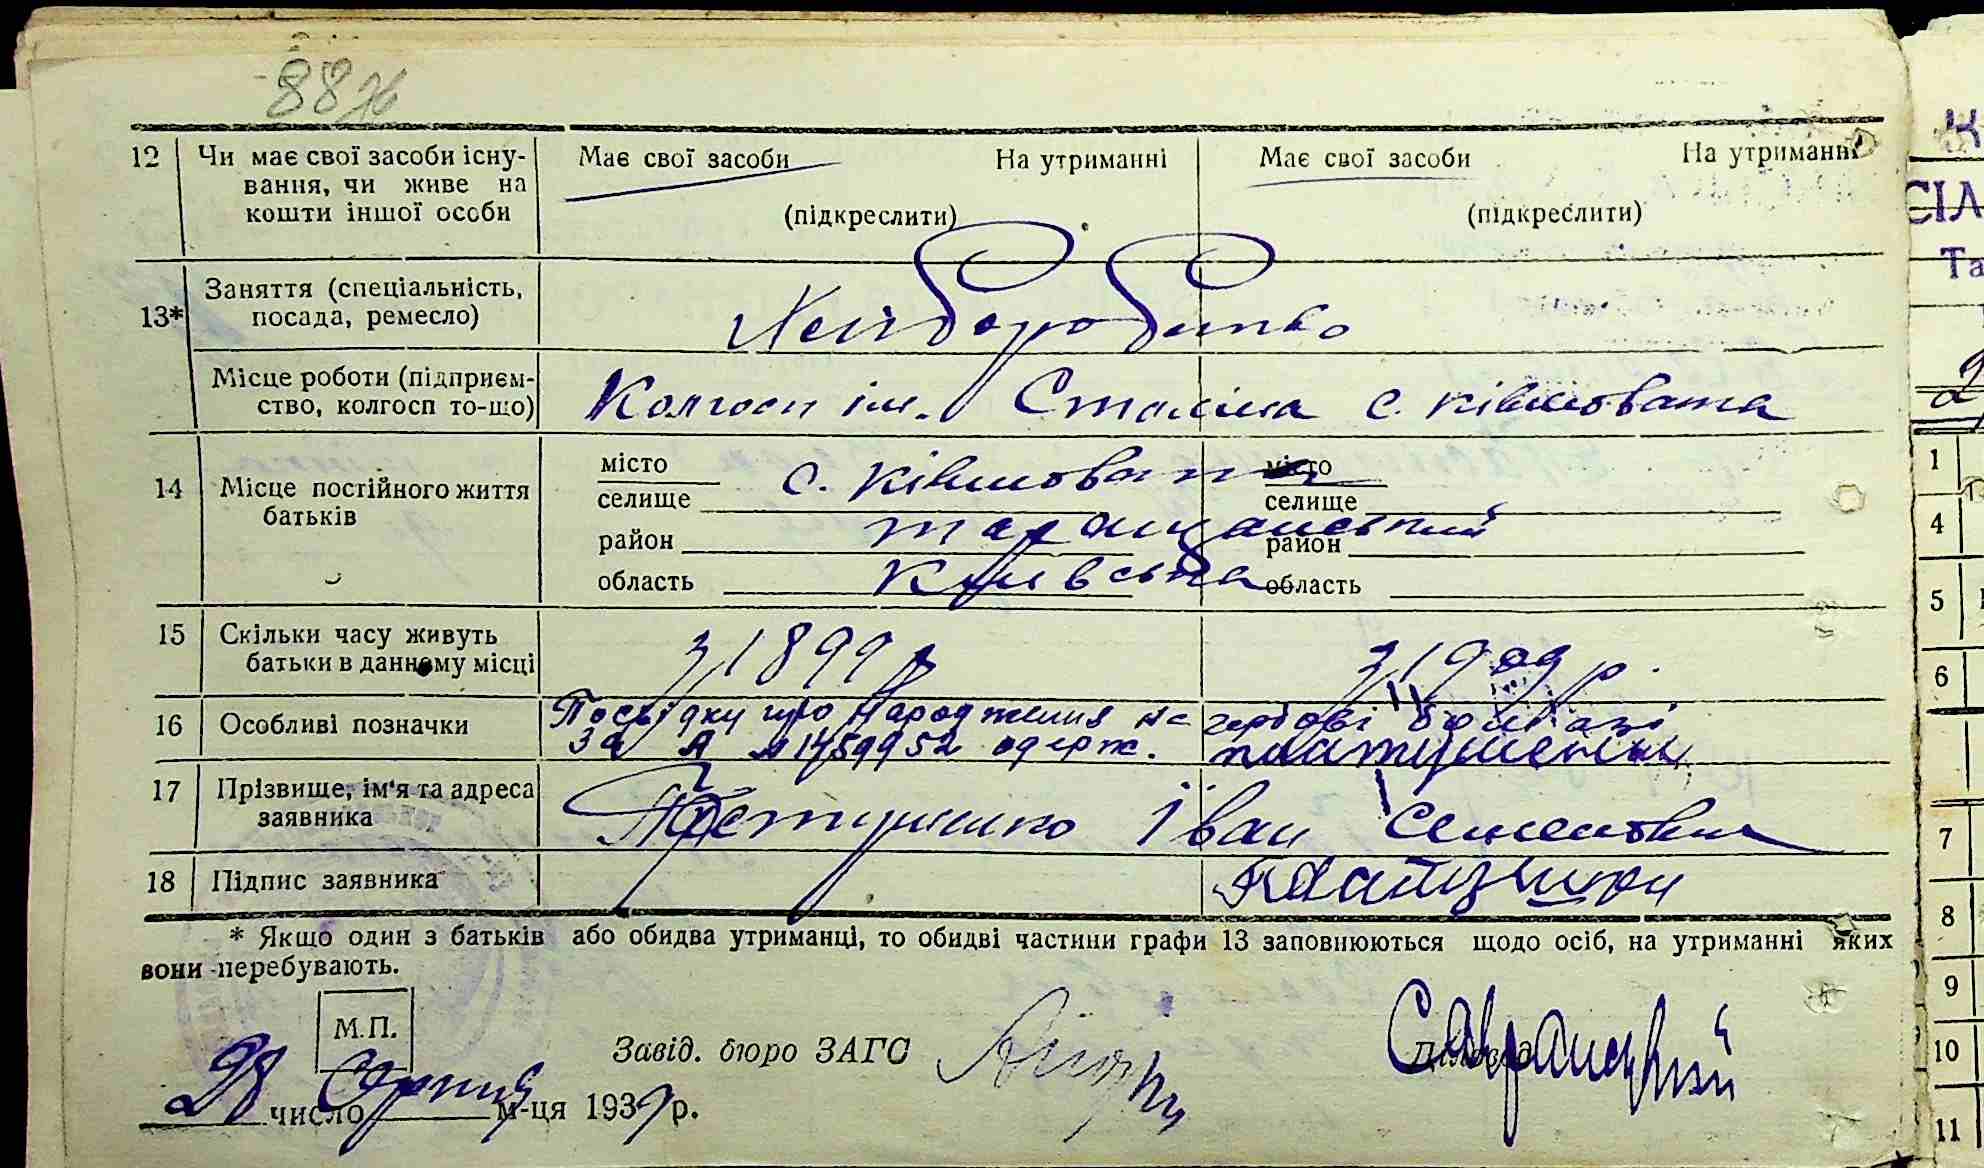 88
12 Чи має свої засоби існу-
вання, чи живе на
кошти іншої особи
Має свої засоби На утриманні
(підкреслити)
Має свої засоби На утриманні
(підкреслити)
13* Заняття (спеціальність,
посада, ремесло)
Хліборобство
Місце роботи (підприєм-
ство, колгосп то-що)
Колгосп ім. Сталіна с. Ківшовата
14 Місце постійного життя
батьків
місто
с. Ківшовата
селище
район Таращанський
область Київська
місто
селище
район
область
15 Скільки часу живуть
батьки в данному місці
з 1899 р з 1909 р.
16 Особливі позначки
Посвідку про народження на гербові бумазі
за № 1459952 одерж.
17 Прізвище, ім'я та адреса
заявника
Іван Семенович
18 Підпис заявника
* Якщо один з батьків або обидва утриманці, то обидві частини графи 13 заповнюються щодо осіб, на утриманні яких
вони перебувають.
М.П.
Завід. бюро ЗАГС
Діловод
28 число Серпня м-ця 1939 р.
К
СІЛ
Та
2
1
4
5
6
7
8
9
10
11